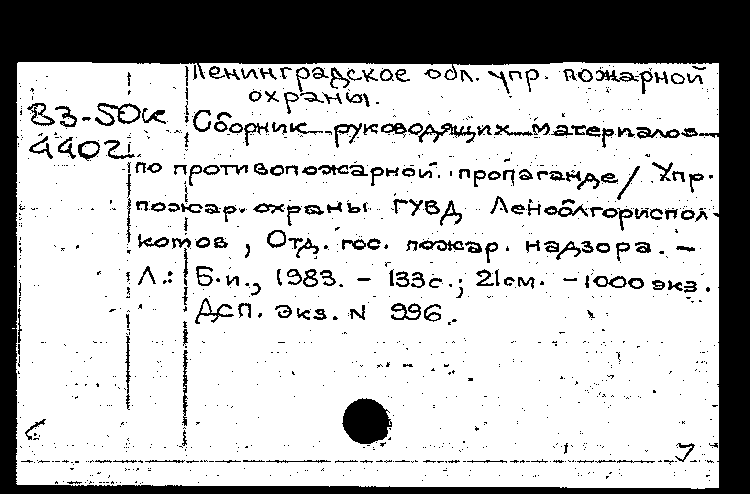 Ленинградское обл. упр. пожарной
охраны.
83-50к
4402
Сборник руководящих материалов
по противопожарной пропаганде / Упр.
пожар. охраны ГУВД Леноблгориспол-
комов, Отд. гос. пожар. надзора. –
Л.: Б.и., 1983. – 133с.; 21см. – 1000 экз.
ДСП. Экз. N 996.